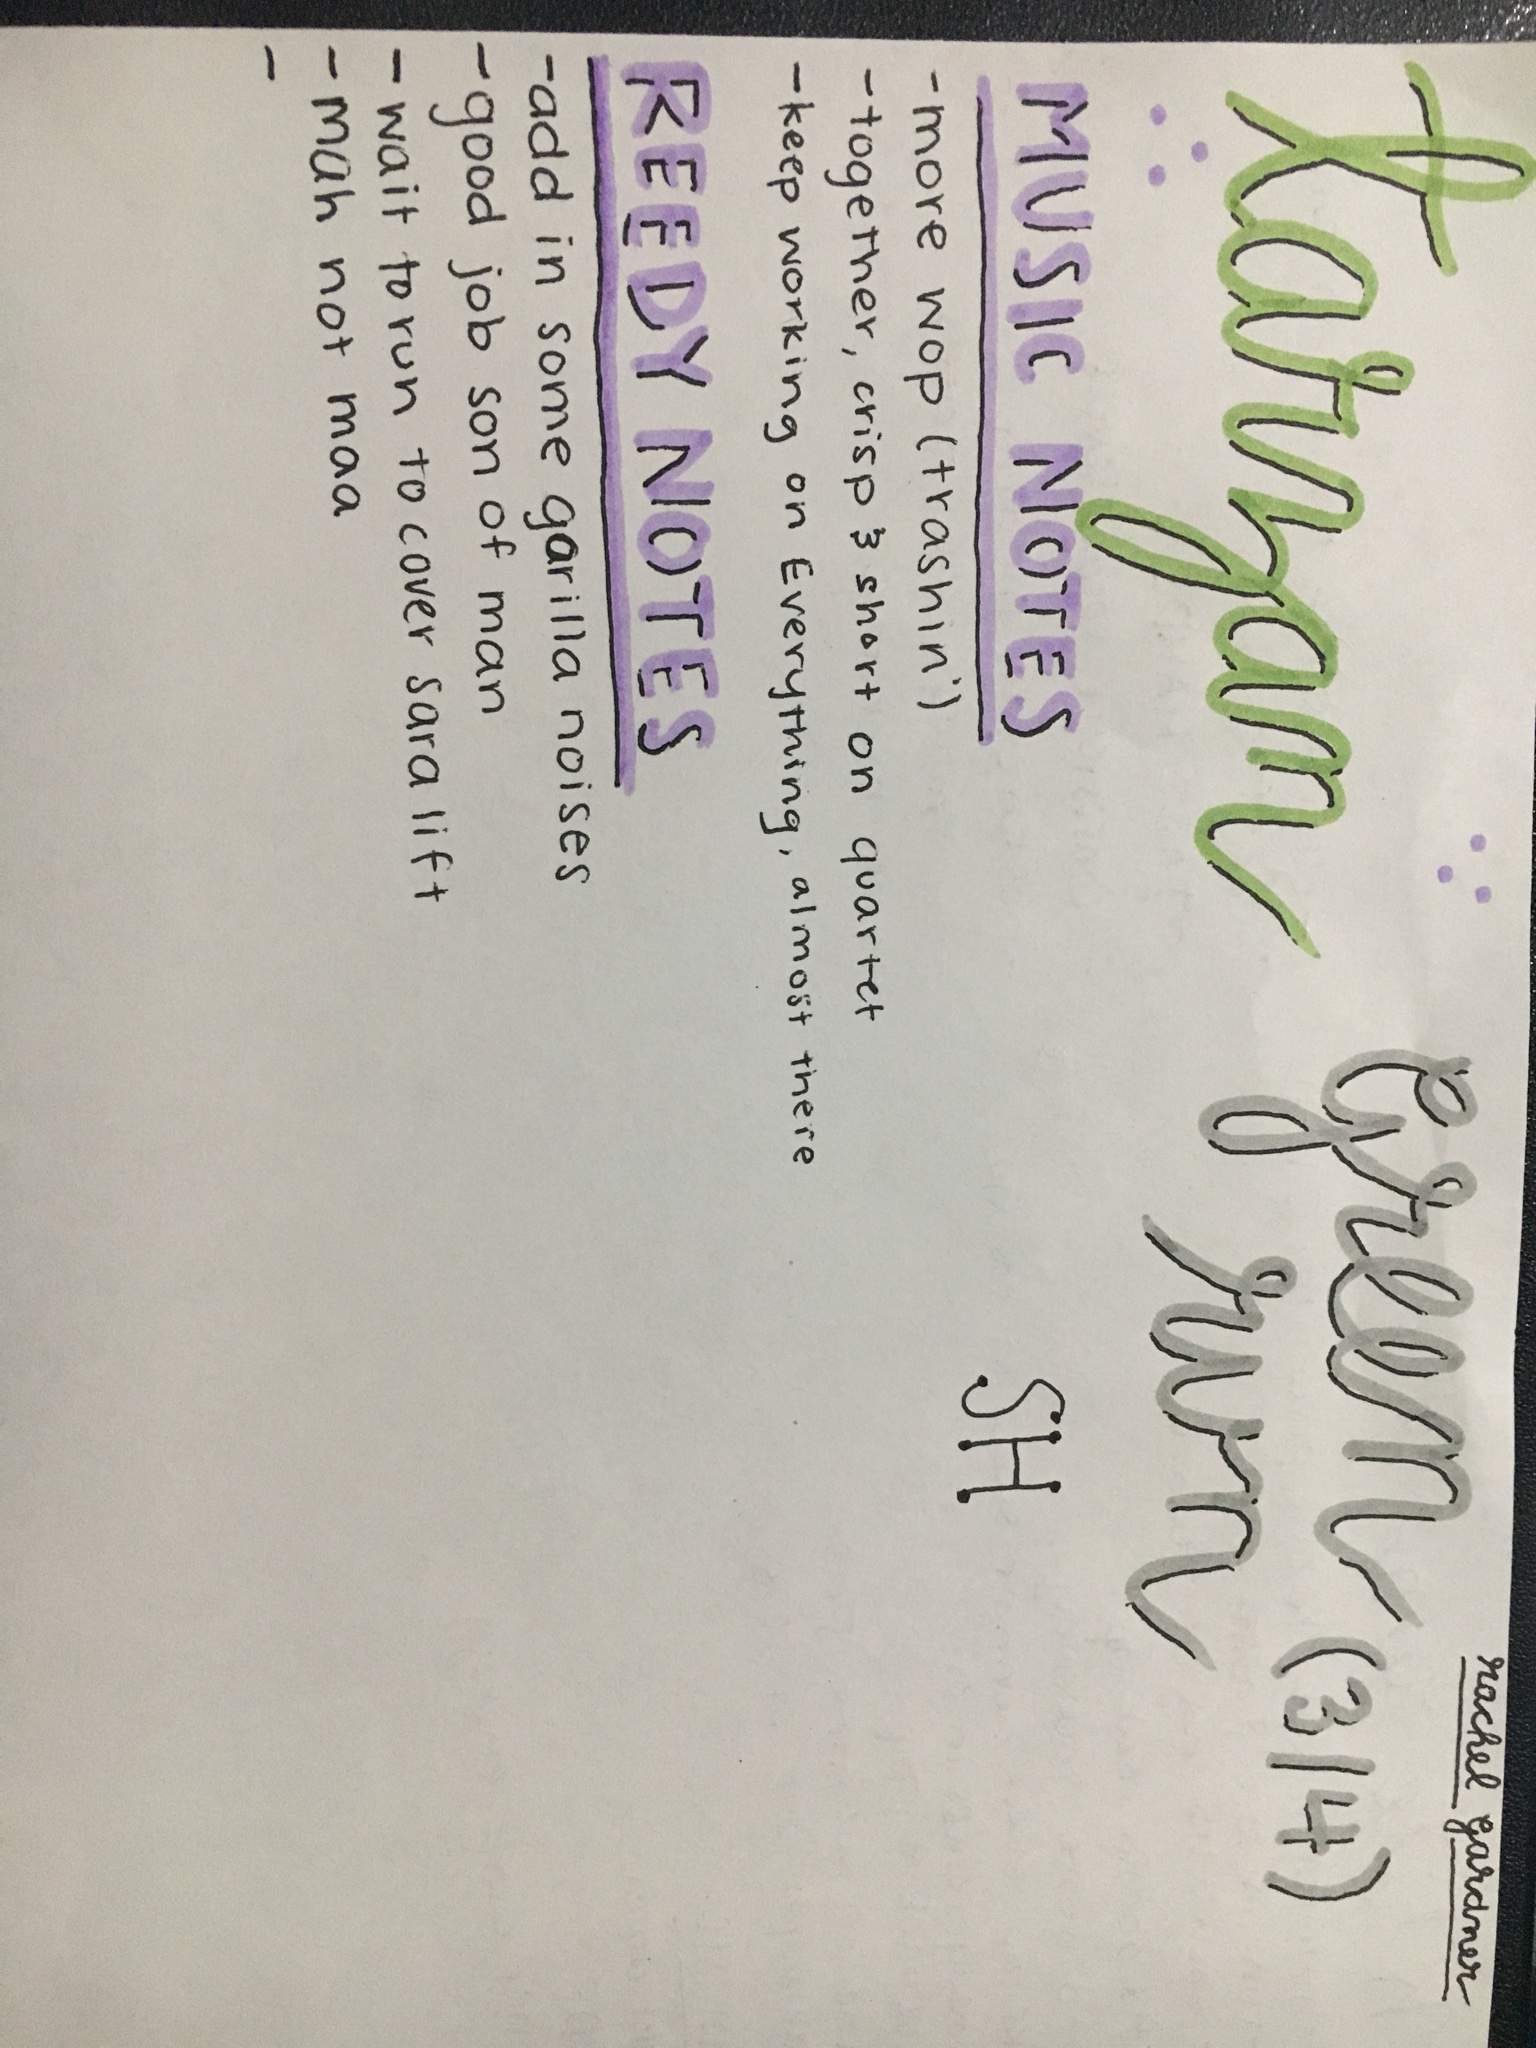 rachel gardner
tarzan
green run (3/4)
MUSIC NOTES
SH
-more wop (trashin')
-together, crisp & short on quartet
-keep working on Everything, almost there
REEDY NOTES
-add in some garilla noises
-good job son of man
-wait to run to cover sara lift
-mah not maa
-